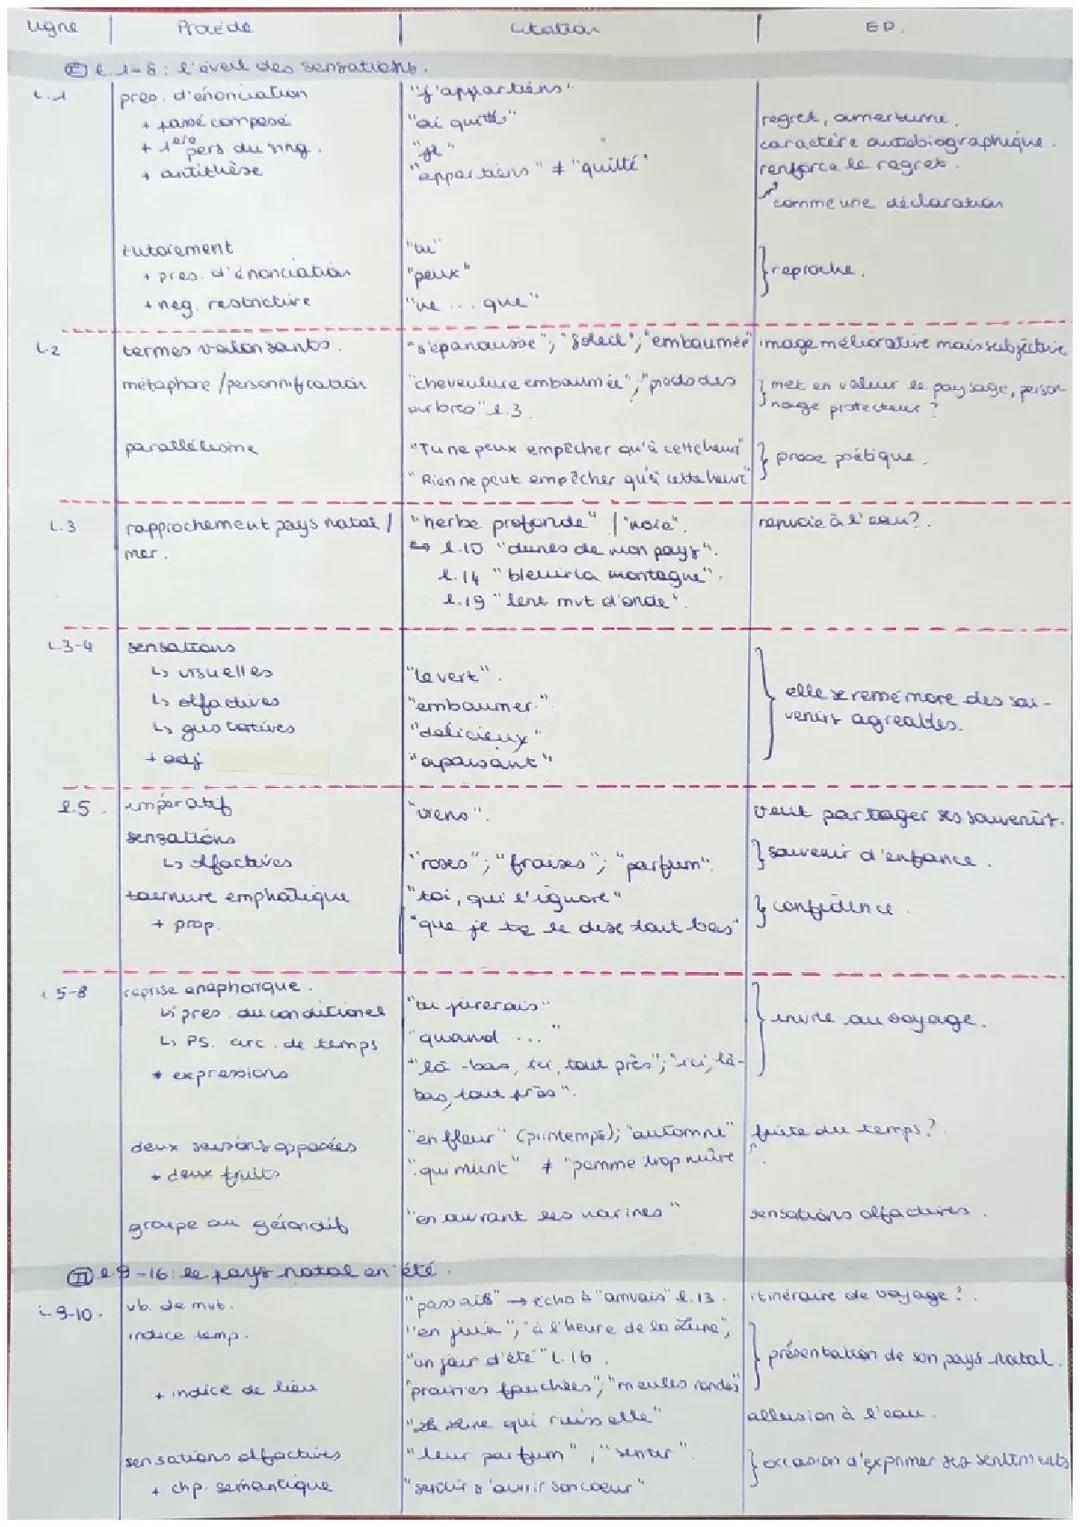 Ligne | Procédé | Citation | EP.
Ⓘ l.1-8 : l'éveil des sensations.
L.1 pres. d'énonciation "J'appartiens"
+ passé composé "ai quitté" regret, amertume.
+ 1ere pers du sing. "je" caractère autobiographique.
+ antithèse "appartiens" ≠ "quitté" renforce le regret.
comme une déclaration
tutoiement "tu"
+ pres. d'énonciation "peux" } reproche.
+ neg. restrictive "ne ... que"
L.2 termes valorisants. "s'épanouisse"; "soleil"; "embaumée" image méliorative mais subjective
métaphore / personnification "chevelure embaumée"; "pieds des } met en valeur le paysage, person-
arbres" l.3. nage protecteur ?
parallélisme "Tu ne peux empêcher qu'à cette heure" } prose poétique.
"Rien ne peut empêcher qu'à cette heure"
L.3 rapprochement pays natal / "herbe profonde" / "noie". renvoie à l'eau?.
mer. ↔ l.10 "dunes de mon pays".
l.14 "bleuir la montagne".
l.19 "lent mvt d'onde".
L.3-4 sensations
↳ visuelles "le vert".
↳ olfactives "embaumer." } elle se remémore des sou-
↳ gustatives "délicieux" venirs agréables.
+ adj "apaisant"
l.5. impératif "viens". veut partager ses souvenirs.
sensations
↳ olfactives "roses"; "fraises"; "parfum". } souvenir d'enfance.
tournure emphatique "toi, qui l'ignore" } confidence.
+ prop. "que je te le dise tout bas"
L5-8 reprise anaphorique.
↳ pres. du conditionel "tu jurerais"
↳ PS. circ. de temps "quand ..." } invite au voyage.
+ expressions "là-bas, ici, tout près"; "ici, là-
bas, tout près".
deux saisons opposées "en fleur" (printemps); "automne" fuite du temps?
+ deux fruits "qui murit" ≠ "pomme trop mûre
groupe au gérondif "en ouvrant les narines" sensations olfactives.
Ⓘ Ⓘ l.9-16: le pays natal en été.
L.9-10. vb. de mvt. "passais" → écho à "arrivais" l.13. itinéraire de voyage ?.
indice temp. "en juin"; "à l'heure de la Lune";
"un jour d'été" L.16. } présentation de son pays natal.
+ indice de lieu "prairies fauchées"; "meules rondes"
qui ruisselle" allusion à l'eau.
sensations olfactives "leur parfum", "sentir". } occasion d'exprimer ses sentiments
+ chp. sémantique s'ouvrir son coeur"